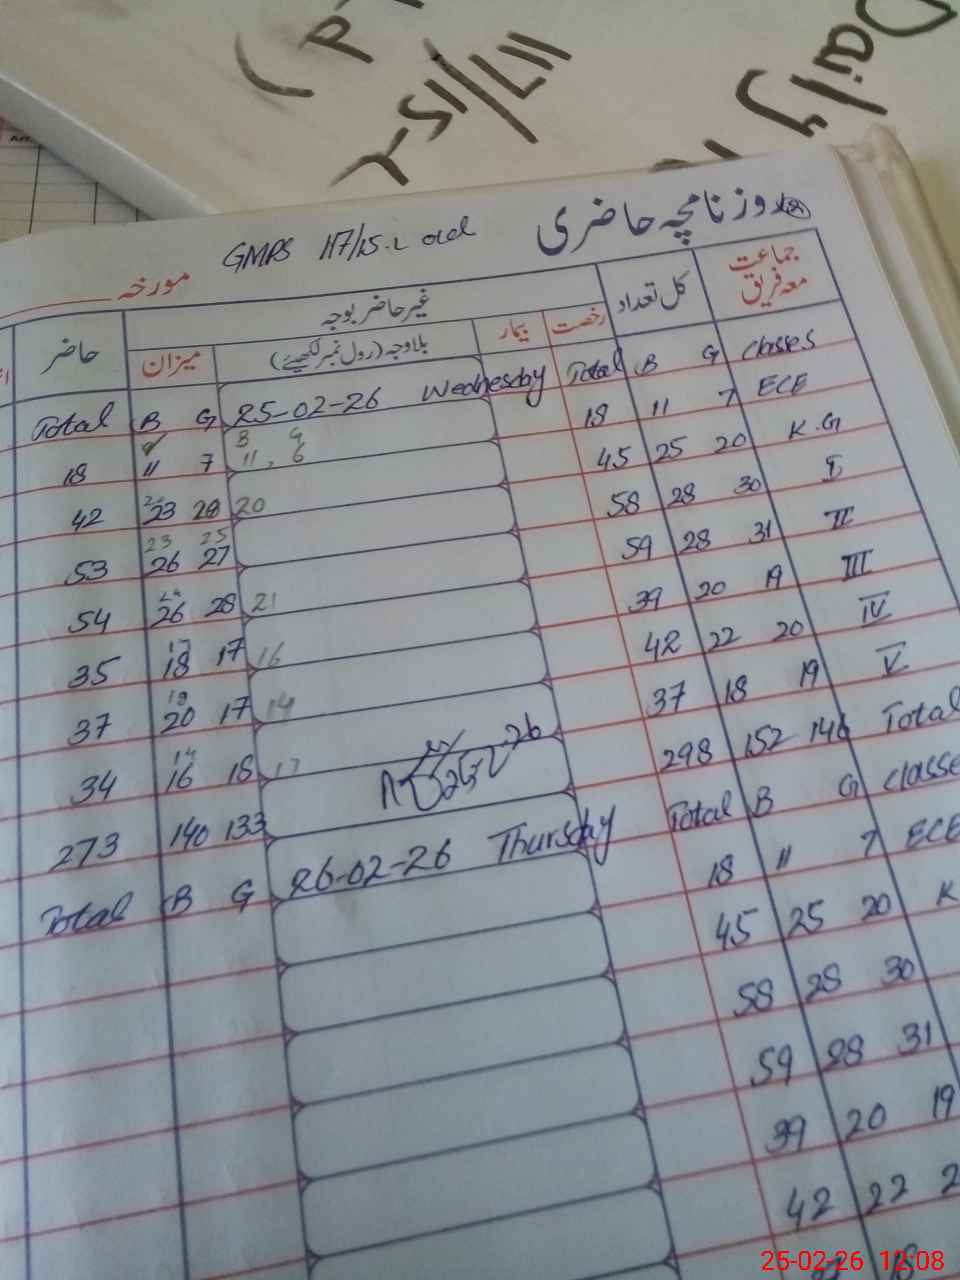 Daily
117/15-L
GMPS 117/15.L old
روزنامچہ حاضری
مورخہ
جماعت معہ فریق
کل تعداد
غیر حاضر بوجہ
حاضر
رخصت
بیمار
بلاوجہ (رول نمبر لکھیئے)
میزان
Total B G 25-02-26 Wednesday Total B G Classes
18 11 7 3 9 11, 6 18 11 7 ECE
42 23 20 45 25 20 K.G
53 23 25 26 27 58 28 30 I
54 26 28 21 59 28 31 II
35 17 18 17 16 39 20 19 III
37 20 17 14 42 22 20 IV
34 14 16 18 17 37 18 19 V
273 140 133 298 152 146 Total
Total B G 26-02-26 Thursday Total B G Classe
18 11 7 ECE
45 25 20 K
58 28 30
59 28 31
39 20 19
42 22 2
25-02-26 12:08